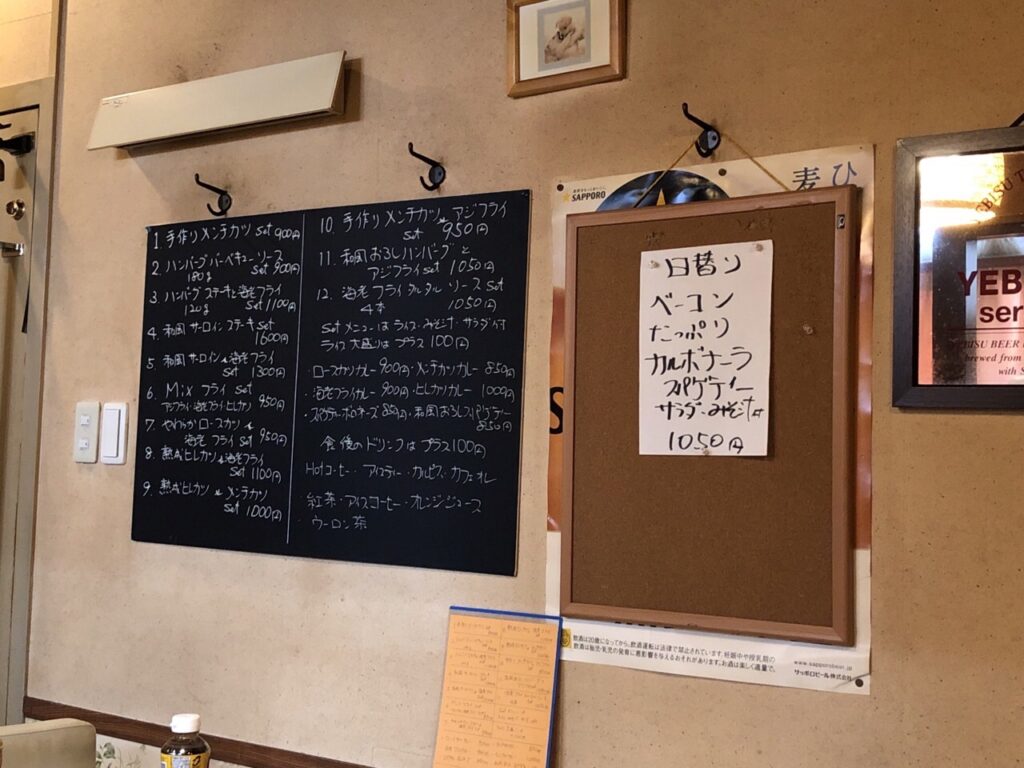 1. 手作りメンチカツ set 900円
2. ハンバーグバーベキューソース
180g set 900円
3. ハンバーグステーキと海老フライ
120g set 1100円
4. 和風サーロインステーキ set
1600円
5. 和風サーロイン&海老フライ
set 1300円
6. Mixフライ set
アジフライ・海老フライ・ヒレカツ 950円
7. やわらかロースカツ&
海老フライ set 950円
8. 熟成ヒレカツ&海老フライ
set 1100円
9. 熟成ヒレカツ&メンチカツ
set 1000円
10. 手作りメンチカツ&アジフライ
set 950円
11. 和風おろしハンバーグと
アジフライ set 1050円
12. 海老フライタルタルソース set
4本 1050円
setメニューはライス・みそ汁・サラダ付
ライス大盛りはプラス100円
・ロースカツカレー900円・メンチカツカレー850円
・海老フライカレー900円・ヒレカツカレー1000円
・スパゲティーボロネーズ850円・和風おろしスパゲティー
850円
食後のドリンクはプラス100円
Hotコーヒー・アイスティー・カルピス・カフェオレ
紅茶・アイスコーヒー・オレンジジュース
・ウーロン茶
SAPPORO
麦
ひ
日替り
ベーコン
たっぷり
カルボナーラ
スパゲティー
サラダ・みそ汁付
1050円
飲酒は20歳になってから。飲酒運転は法律で禁止されています。妊娠中や授乳期の
飲酒は胎児・乳児の発育に悪影響を与えるおそれがあります。お酒は楽しく適量で。
www.sapporobeer.jp
サッポロビール株式会社
YEB
ser
BISU BEER
brewed from
with S